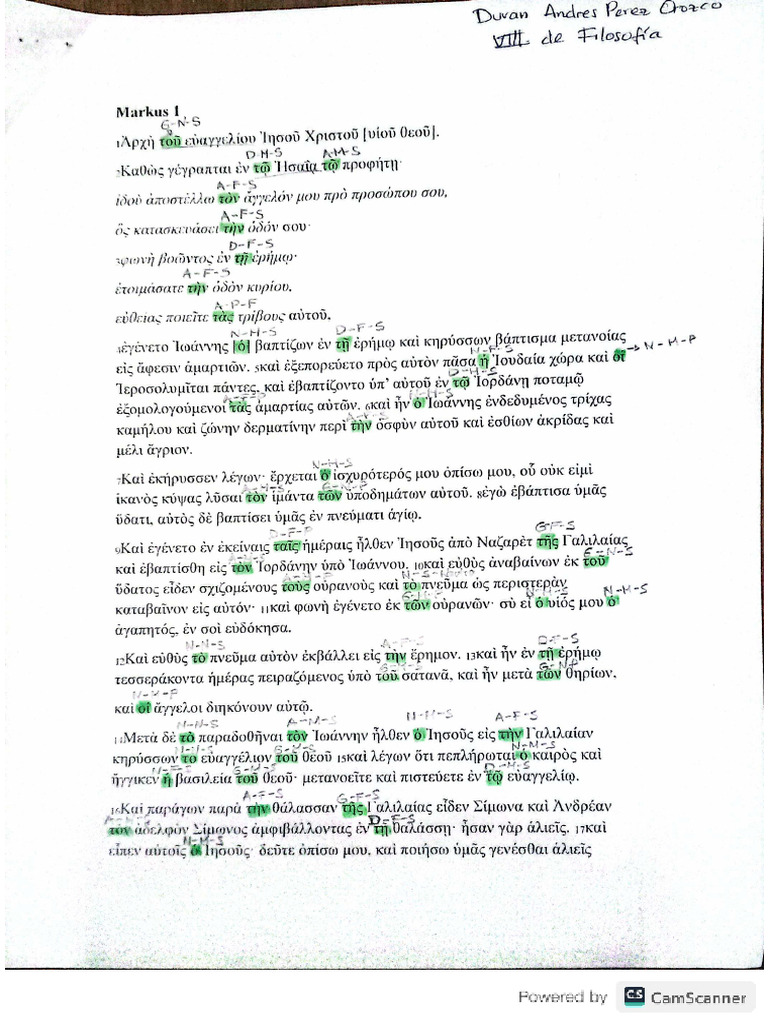 Duvan Andres Perez Orozco
VIII de Filosofía
Markus 1
G-N-S
1Ἀρχὴ τοῦ εὐαγγελίου Ἰησοῦ Χριστοῦ [υἱοῦ θεοῦ].
D-M-S A-M-S
2Καθὼς γέγραπται ἐν τῷ Ἠσαΐᾳ τῷ προφήτῃ·
A-F-S
ἰδοὺ ἀποστέλλω τὸν ἄγγελόν μου πρὸ προσώπου σου,
A-F-S
ὃς κατασκευάσει τὴν ὁδόν σου·
D-F-S
3φωνὴ βοῶντος ἐν τῇ ἐρήμῳ·
A-F-S
ἑτοιμάσατε τὴν ὁδὸν κυρίου,
A-P-F
εὐθείας ποιεῖτε τὰς τρίβους αὐτοῦ,
N-M-S D-F-S
4ἐγένετο Ἰωάννης [ὁ] βαπτίζων ἐν τῇ ἐρήμῳ καὶ κηρύσσων βάπτισμα μετανοίας
N-F-S N-M-P
εἰς ἄφεσιν ἁμαρτιῶν. 5καὶ ἐξεπορεύετο πρὸς αὐτὸν πᾶσα ἡ Ἰουδαία χώρα καὶ οἱ
D-M-S
Ἱεροσολυμῖται πάντες, καὶ ἐβαπτίζοντο ὑπ' αὐτοῦ ἐν τῷ Ἰορδάνῃ ποταμῷ
A-F-P N-M-S
ἐξομολογούμενοι τὰς ἁμαρτίας αὐτῶν. 6καὶ ἦν ὁ Ἰωάννης ἐνδεδυμένος τρίχας
A-F-S
καμήλου καὶ ζώνην δερματίνην περὶ τὴν ὀσφὺν αὐτοῦ καὶ ἐσθίων ἀκρίδας καὶ
μέλι ἄγριον.
N-M-S
7Καὶ ἐκήρυσσεν λέγων· ἔρχεται ὁ ἰσχυρότερός μου ὀπίσω μου, οὗ οὐκ εἰμὶ
A-M-S G-N-P
ἱκανὸς κύψας λῦσαι τὸν ἱμάντα τῶν ὑποδημάτων αὐτοῦ. 8ἐγὼ ἐβάπτισα ὑμᾶς
ὕδατι, αὐτὸς δὲ βαπτίσει ὑμᾶς ἐν πνεύματι ἁγίῳ.
D-F-P G-F-S
9Καὶ ἐγένετο ἐν ἐκείναις ταῖς ἡμέραις ἦλθεν Ἰησοῦς ἀπὸ Ναζαρὲτ τῆς Γαλιλαίας
A-M-S G-N-S
καὶ ἐβαπτίσθη εἰς τὸν Ἰορδάνην ὑπὸ Ἰωάννου. 10καὶ εὐθὺς ἀναβαίνων ἐκ τοῦ
A-M-P
ὕδατος εἶδεν σχιζομένους τοὺς οὐρανοὺς καὶ τὸ πνεῦμα ὡς περιστερὰν
N-M-S N-M-S
καταβαῖνον εἰς αὐτόν· 11καὶ φωνὴ ἐγένετο ἐκ τῶν οὐρανῶν· σὺ εἶ ὁ υἱός μου ὁ
ἀγαπητός, ἐν σοὶ εὐδόκησα.
N-N-S A-F-S D-F-S
12Καὶ εὐθὺς τὸ πνεῦμα αὐτὸν ἐκβάλλει εἰς τὴν ἔρημον. 13καὶ ἦν ἐν τῇ ἐρήμῳ
G-N-P
τεσσεράκοντα ἡμέρας πειραζόμενος ὑπὸ τοῦ σατανᾶ, καὶ ἦν μετὰ τῶν θηρίων,
N-M-P
καὶ οἱ ἄγγελοι διηκόνουν αὐτῷ.
N-N-S A-M-S N-M-S A-F-S
14Μετὰ δὲ τὸ παραδοθῆναι τὸν Ἰωάννην ἦλθεν ὁ Ἰησοῦς εἰς τὴν Γαλιλαίαν
N-M-S
κηρύσσων τὸ εὐαγγέλιον τοῦ θεοῦ 15καὶ λέγων ὅτι πεπλήρωται ὁ καιρὸς καὶ
N-F-S G-M-S D-M-S
ἤγγικεν ἡ βασιλεία τοῦ θεοῦ· μετανοεῖτε καὶ πιστεύετε ἐν τῷ εὐαγγελίῳ.
A-F-S G-F-S
16Καὶ παράγων παρὰ τὴν θάλασσαν τῆς Γαλιλαίας εἶδεν Σίμωνα καὶ Ἀνδρέαν
D-F-S
τὸν ἀδελφὸν Σίμωνος ἀμφιβάλλοντας ἐν τῇ θαλάσσῃ· ἦσαν γὰρ ἁλιεῖς. 17καὶ
N-M-S
εἶπεν αὐτοῖς ὁ Ἰησοῦς· δεῦτε ὀπίσω μου, καὶ ποιήσω ὑμᾶς γενέσθαι ἁλιεῖς
Powered by CS CamScanner